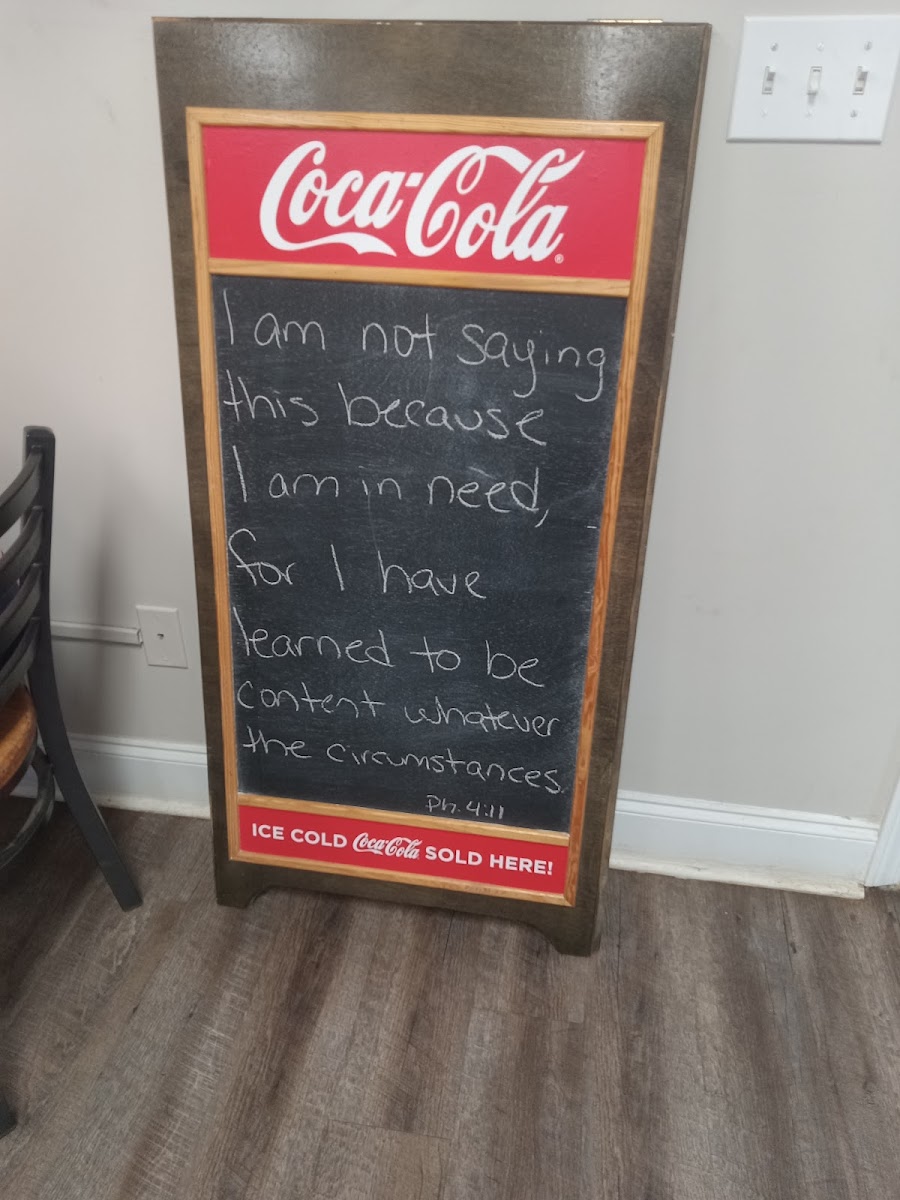 Coca-Cola
I am not saying
this because
I am in need,
for I have
learned to be
content whatever
the circumstances.
Ph. 4:11
ICE COLD Coca-Cola SOLD HERE!